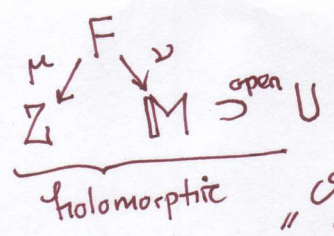 F
μ ν
Z M ⊃ open U
holomorphic
"